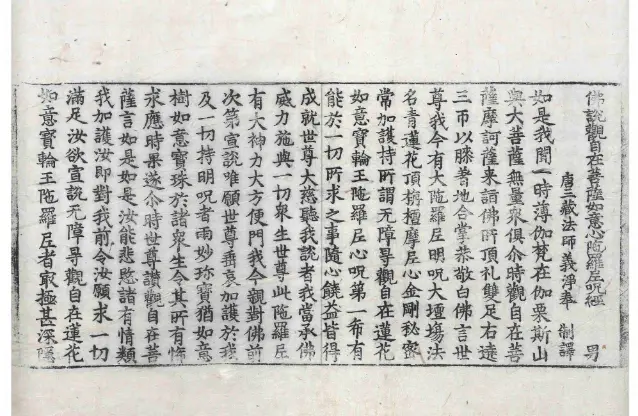 佛說觀自在菩薩如意心陁羅尼呪經
唐三藏法師義淨奉 制譯 男
如是我聞一時薄伽梵在伽栗斯山
與大菩薩無量衆俱尒時觀自在菩
薩摩訶薩來詣佛所頂礼雙足右遶
三帀以膝著地合掌恭敬白佛言世
尊我今有大陁羅尼明呪大壇場法
名青蓮花頂栴檀摩尼心金剛秘密
常加護持所謂无障㝵觀自在蓮花
如意寶輪王陁羅尼心呪第一希有
能於一切所求之事隨心饒益皆得
成就世尊大慈聽我說者我當承佛
威力施與一切衆生世尊此陁羅尼
有大神力大方便門我今親對佛前
次第宣說唯願世尊哀加護於我
及一切持明呪者雨妙珎寶猶如意
樹如意寶珠於諸衆生令其所有悕
求應時果遂尒時世尊讚觀自在菩
薩言如是如是汝能悲愍諸有情類
我加護汝即對我前令汝願求一切
滿足汝欲宣說无障㝵觀自在蓮花
如意寶輪王陁羅尼者㝡極甚深隱